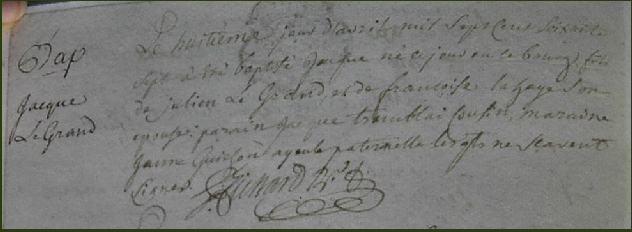 Bap
Jacque
Le Grand
Le huitieme jour d'avril mil sept cent soixante
sept a été baptisé Jacque né ce jour en ce bourg fils
de julien Le Grand, et de francoise la haye son
epouse; parain Jacque tremblai cousin, maraine
Janne ayeule paternelle lesqls ne scavent
signer.